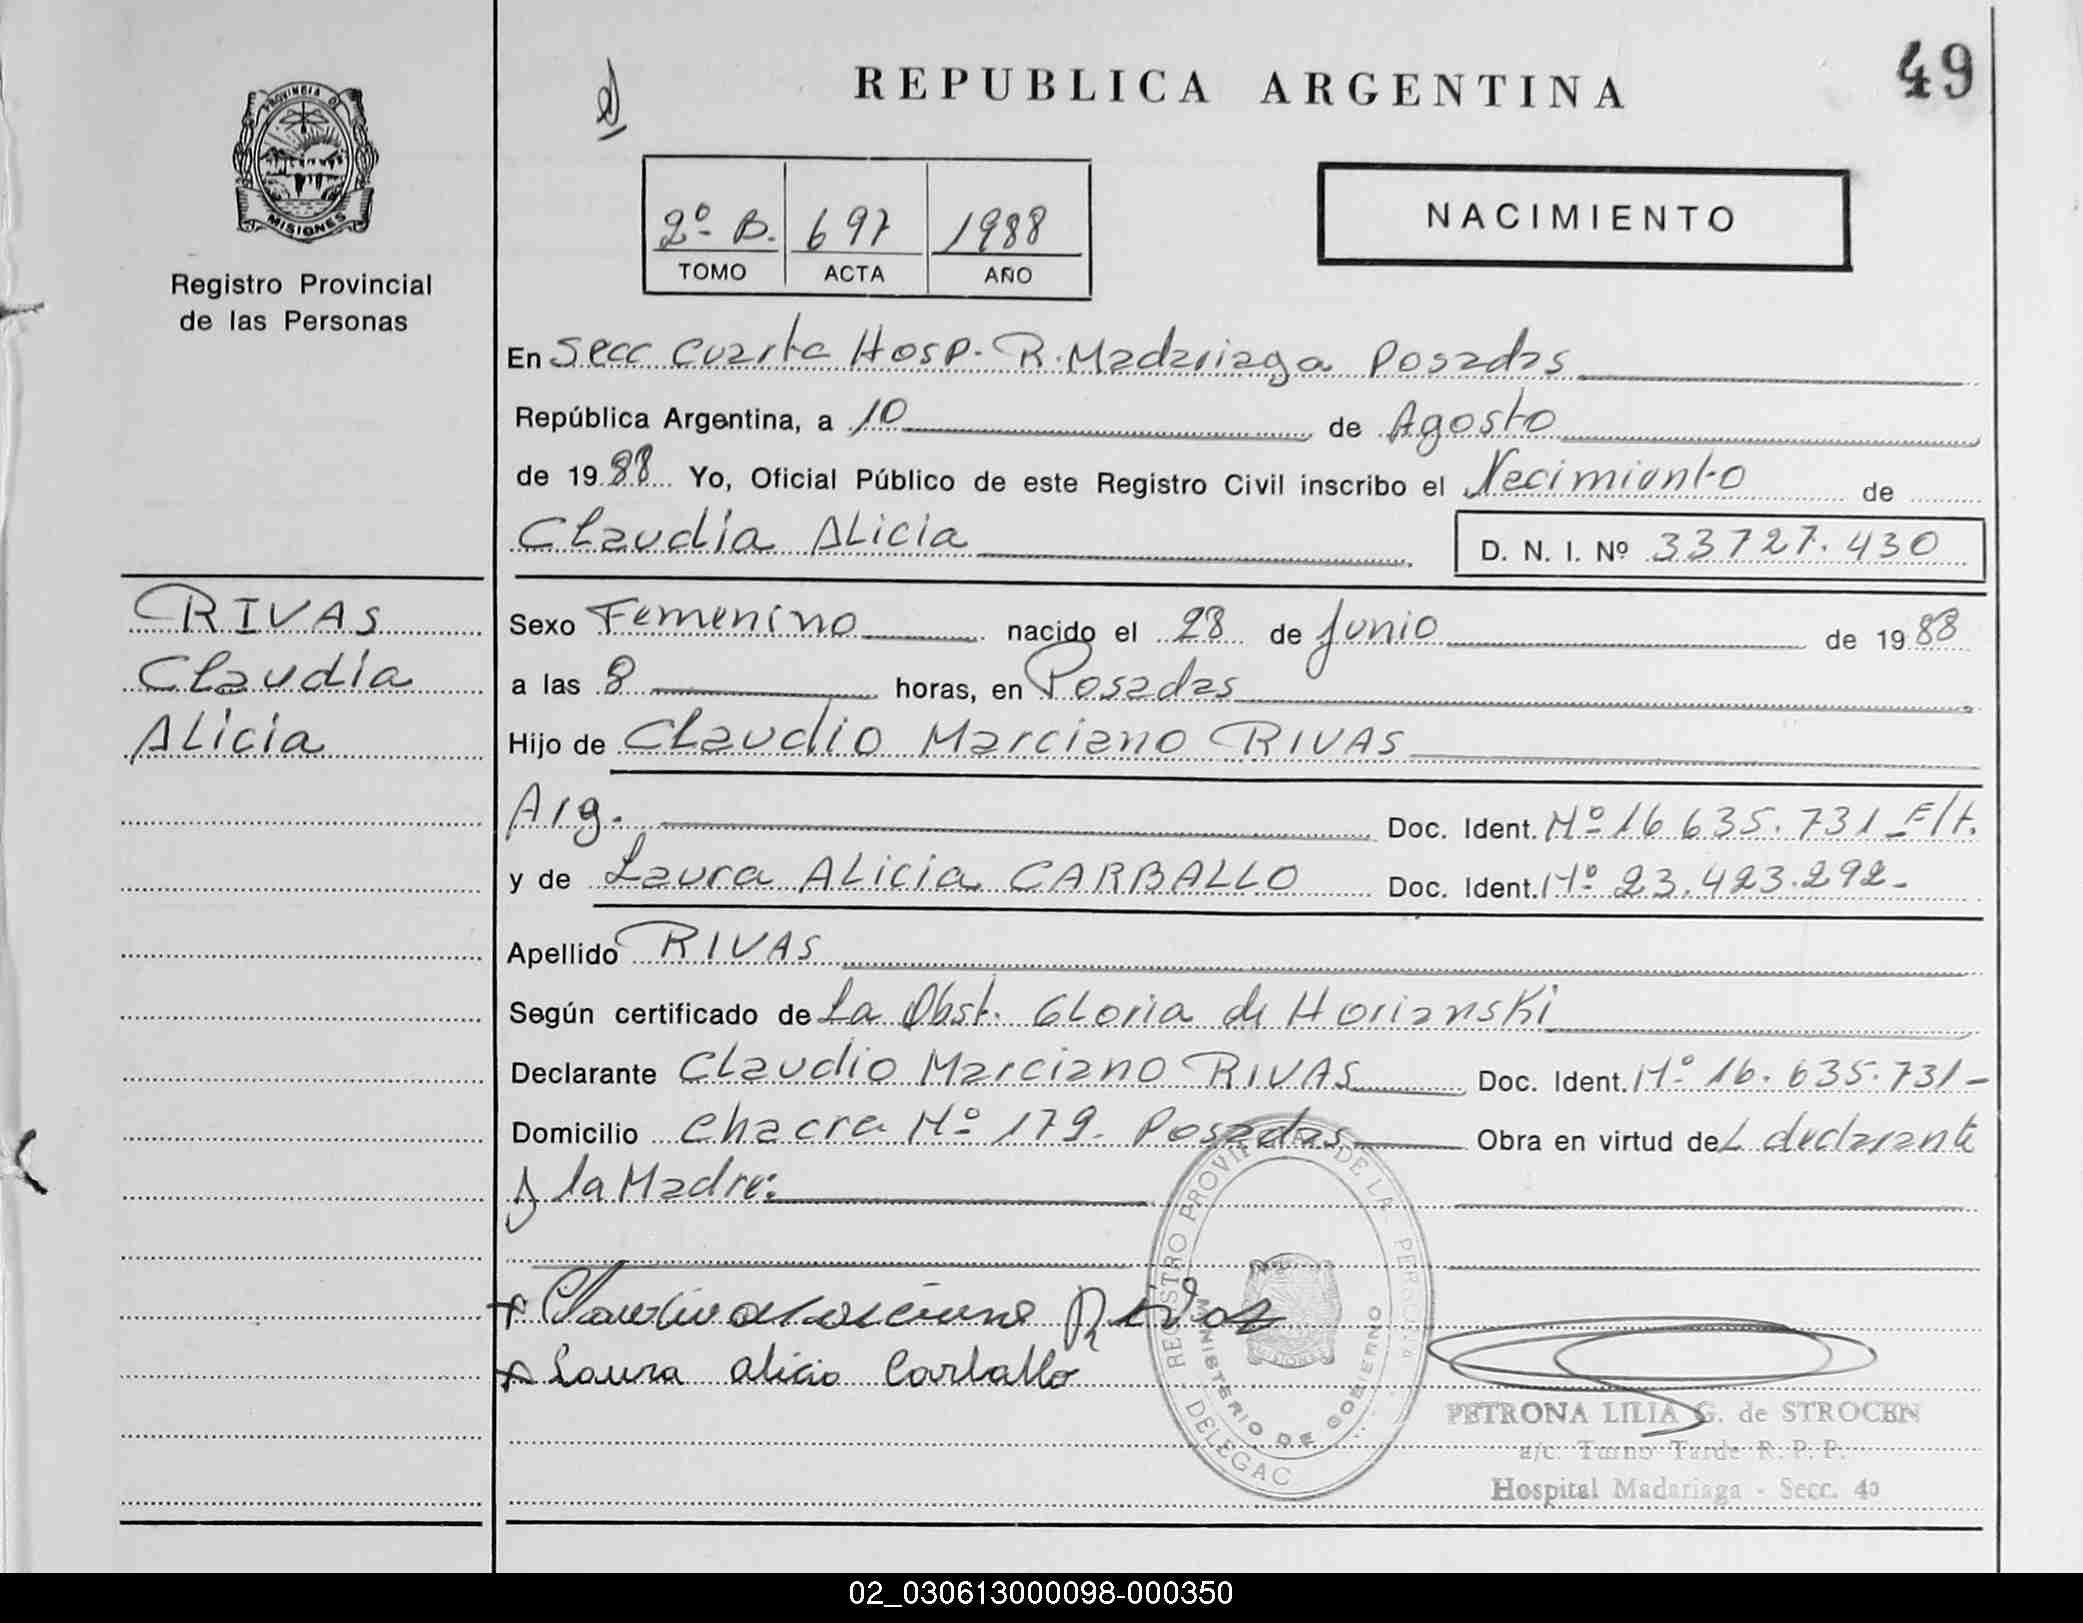 49
REPUBLICA ARGENTINA
PROVINCIA D
MISIONES
Registro Provincial
de las Personas
2º B. 697 1988
TOMO ACTA AÑO
NACIMIENTO
En Secc Cuarta Hosp. R. Madariaga Posadas
República Argentina, a 10 de Agosto
de 1988 Yo, Oficial Público de este Registro Civil inscribo el Nacimiento de
Claudia Alicia D. N. I. Nº 33727.430
RIVAS
Claudia
Alicia
Sexo Femenino nacido el 28 de Junio de 1988
a las 8 horas, en Posadas
Hijo de Claudio Marciano RIVAS
Arg. Doc. Ident. Nº 16 635.731
y de Laura Alicia CARBALLO Doc. Ident. Nº 23.423.292-
Apellido RIVAS
Según certificado de La Obst. Gloria de Horianski
Declarante Claudio Marciano RIVAS Doc. Ident. Nº 16.635.731-
Domicilio Chacra Nº 179. Posadas Obra en virtud del declarante
y la Madre:
Claudio Marciano Rivas
Laura Alicia Carballo
REGISTRO PROVI DE LA PERSONA
MINISTERIO DE GOBIERNO
DELEGAC
PETRONA LILIA G. de STROCEN
a/c. Turno Tarde R. P. P.
Hospital Madariaga - Secc. 4a
02_030613000098-000350